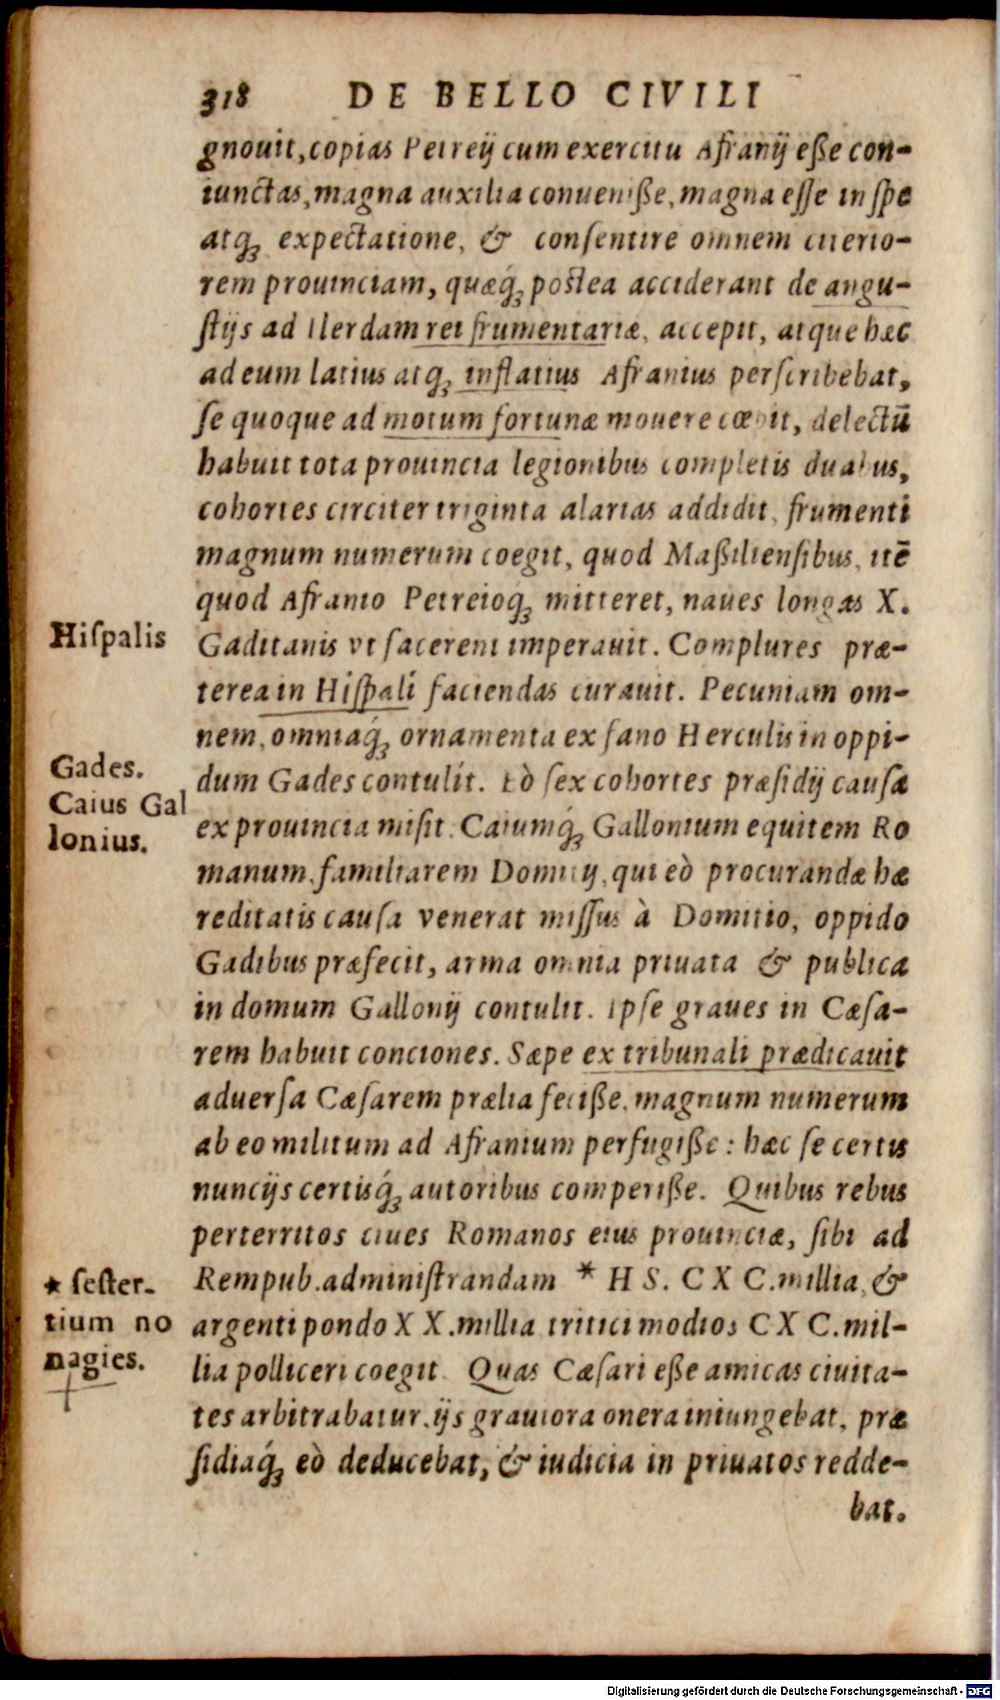 318 DE BELLO CIVILI
gnouit, copias Petreij cum exercitu Afranij eße con-
iunctas, magna auxilia conueniße, magna eſſe in ſpe
atq́ꝫ expectatione, & conſentire omnem citerio-
rem prouinciam, quæq́ꝫ poſtea acciderant de angu-
ſtijs ad Ilerdam rei frumentariæ, accepit, atque hæc
ad eum latius atqꝫ inflatius Afranius perſcribebat,
ſe quoque ad motum fortunæ mouere cœpit, delectū
habuit tota prouincia legionibus completis duabus,
cohortes circiter triginta alarias addidit, frumenti
magnum numerum coegit, quod Maßilienſibus, itē
quod Afranio Petreioqꝫ mitteret, naues longas X.
Hiſpalis
Gaditanis vt facerent imperauit. Complures præ-
terea in Hiſpali faciendas curauit. Pecuniam om-
nem, omniaq́ꝫ ornamenta ex fano Herculis in oppi-
Gades.
dum Gades contulit. Eò ſex cohortes præſidij cauſa
Caius Gal
lonius.
ex prouincia miſit. Caiumq́ꝫ Gallonium equitem Ro
manum, familiarem Domitij, qui eò procurandæ hæ
reditatis cauſa venerat miſſus à Domitio, oppido
Gadibus præfecit, arma omnia priuata & publica
in domum Gallonij contulit. Ipſe graues in Cæſa-
rem habuit conciones. Sæpe ex tribunali prædicauit
aduerſa Cæſarem prælia feciße, magnum numerum
ab eo militum ad Afranium perfugiße: hæc ſe certis
nuncijs certisq́ꝫ autoribus comperiße. Quibus rebus
perterritos ciues Romanos eius prouinciæ, ſibi ad
* ſeſter-
tium no
nagies.
Rempub. adminiſtrandam * HS. CXC. millia, &
argenti pondo XX. millia tritici modios CXC. mil-
lia polliceri coegit. Quas Cæſari eße amicas ciuita-
tes arbitrabatur, ijs grauiora onera iniungebat, præ
ſidiaq́ꝫ eò deducebat, & iudicia in priuatos redde-
bat.
Digitalisierung gefördert durch die Deutsche Forschungsgemeinschaft - DFG